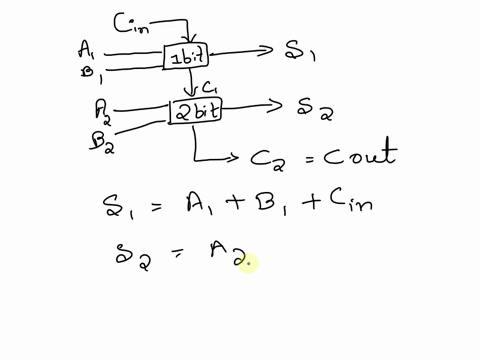 Cin
A1 1bit S1
B1
C1
A2 2bit S2
B2
C2 = Cout
S1 = A1 + B1 + Cin
S2 = A2